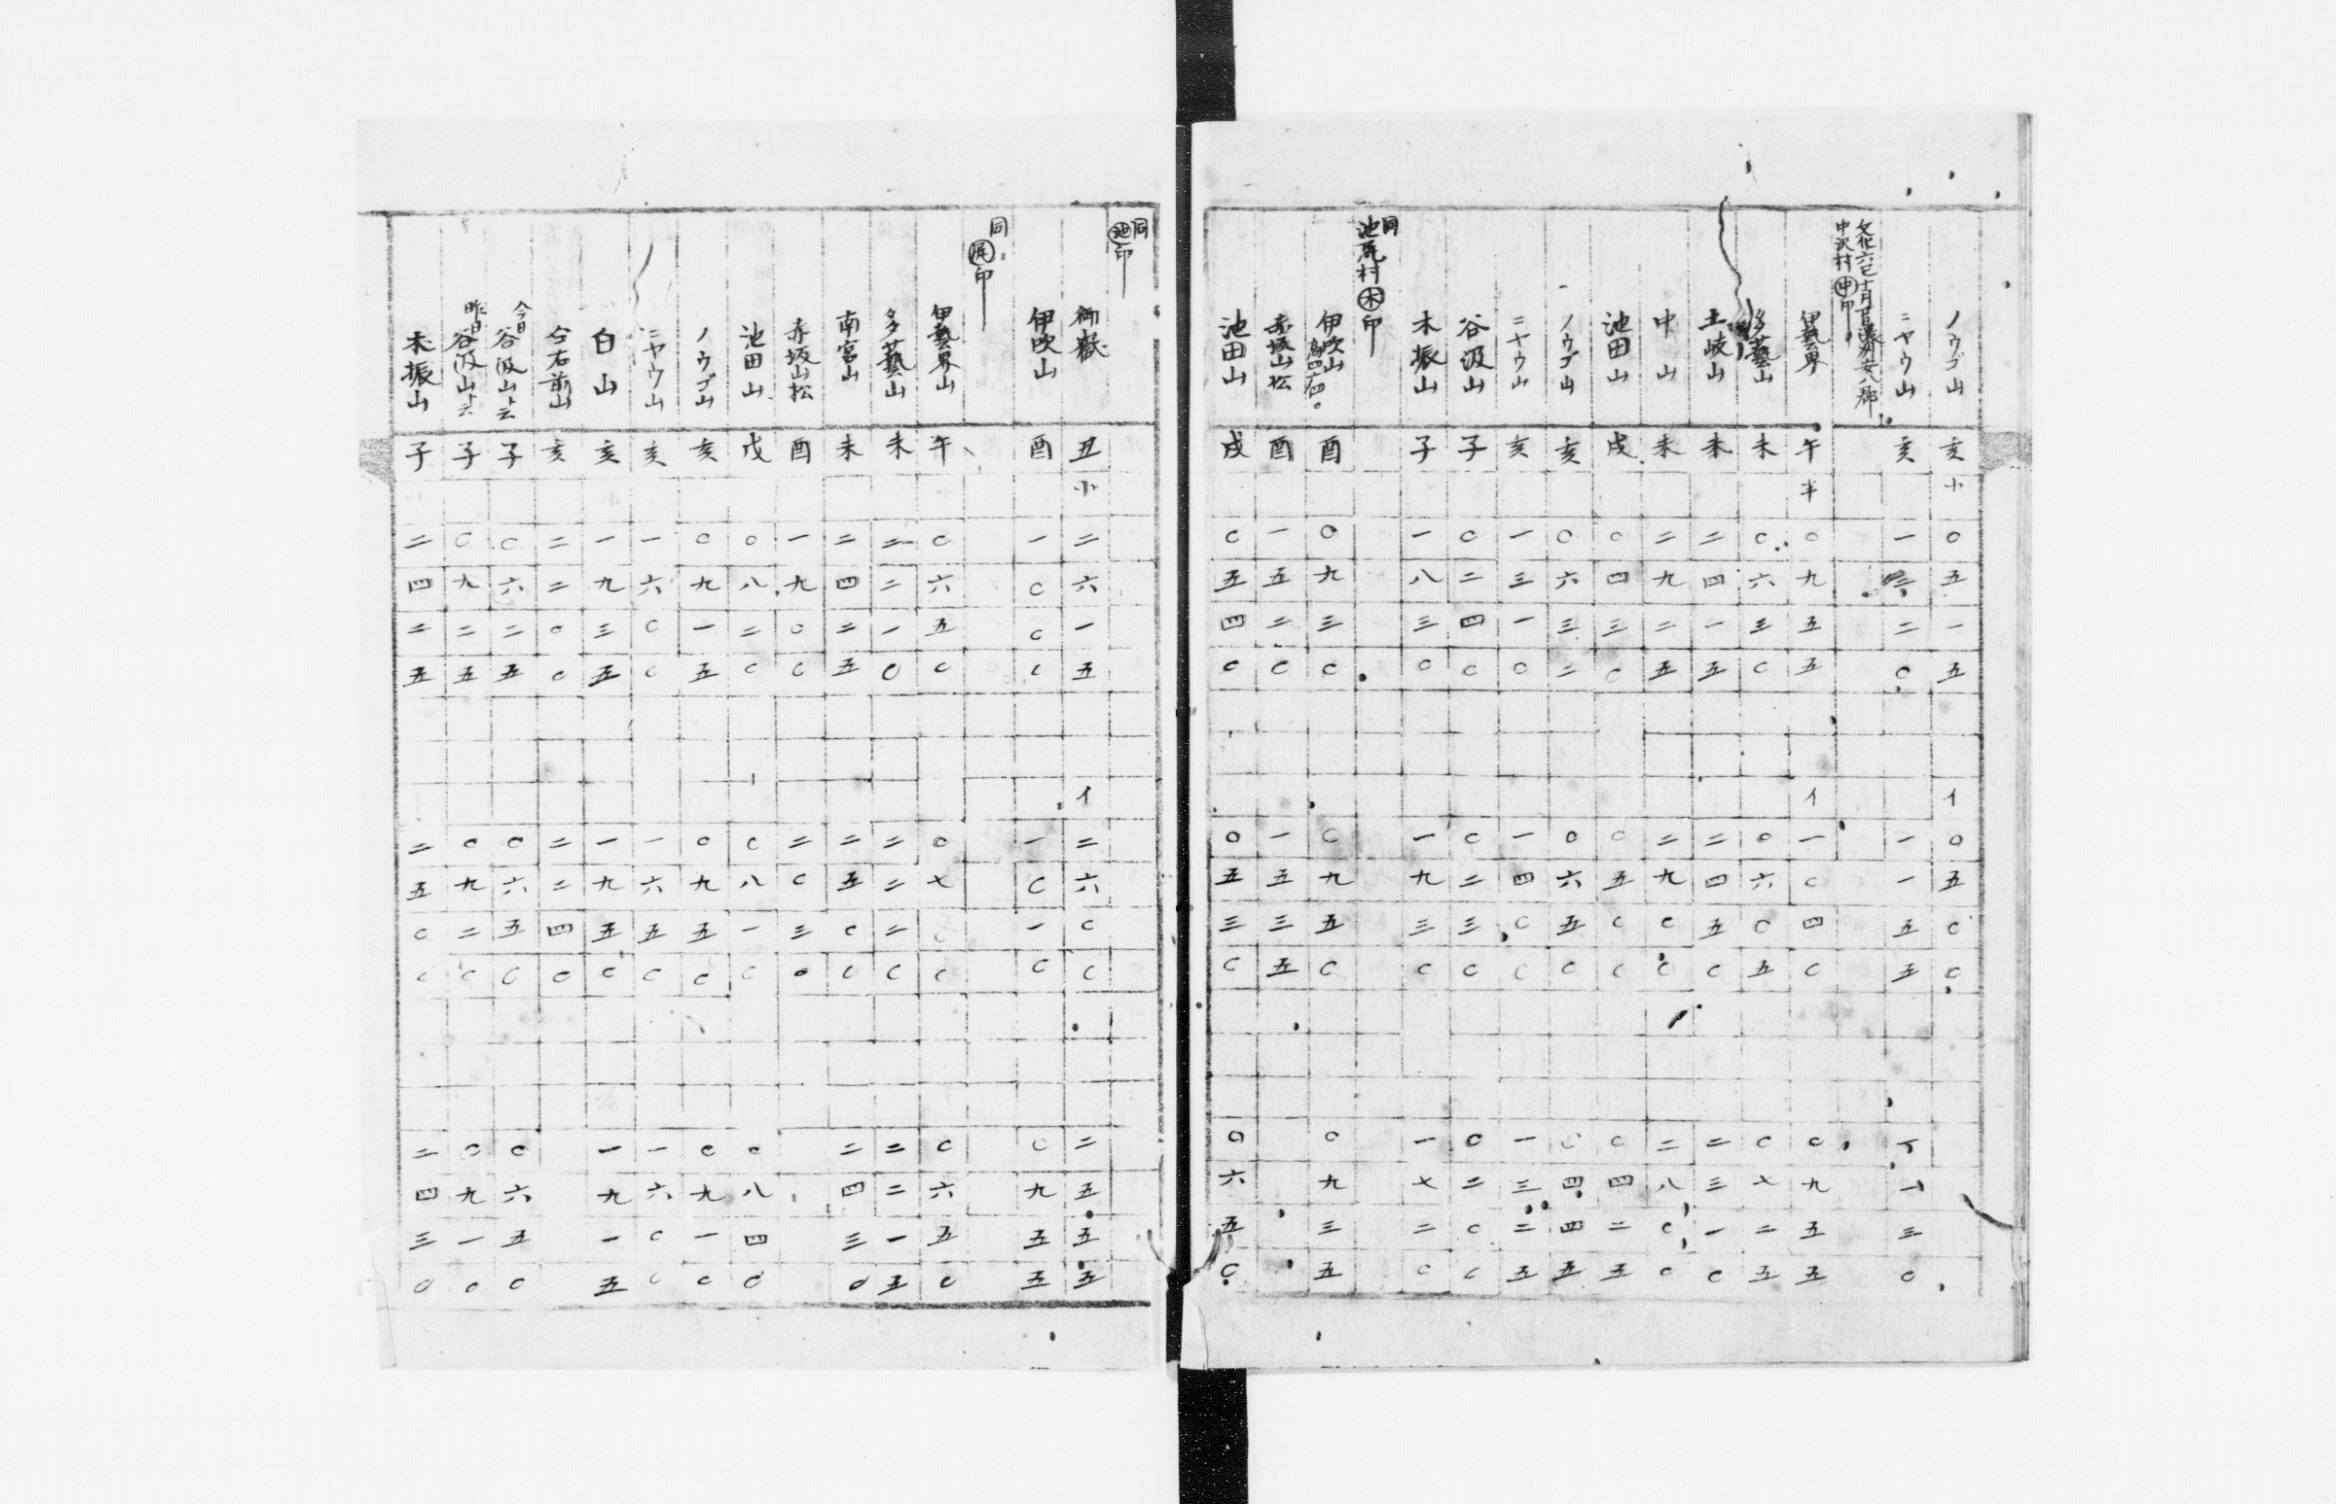 ノウゴ山 亥 小 〇五一五 イ 〇五〇〇
ニヤウ山 亥 一 二〇 一一五五 一一三〇
文化六巳十一月 日濃州安八郡
中沢村 ㊥印
伊藝界 午 半 〇九五五 イ 一〇四〇 〇九五五
多藝山 未 〇六三〇 〇六〇五 〇七二五
土岐山 未 二四一五 二四五〇 二三一〇
中山 未 二九二五 二九〇〇 二八〇〇
池田山 戌 〇四三〇 〇五〇〇 〇四二五
ノウゴ山 亥 〇六三二 〇六五〇 〇四四五
ニヤウ山 亥 一三一〇 一四〇〇 一三二五
谷汲山 子 〇二四〇 〇二三〇 〇二〇〇
木振山 子 一八三〇 一九三〇 一七二〇
同
池尻村 ㊍印
伊吹山 酉 〇九三〇 〇九五〇 〇九三五
赤坂山松 酉 一五二〇 一五三五
池田山 戌 〇五四〇 〇五三〇 〇六五〇
同
池印
御嶽 丑 小 二六一五 イ 二六〇〇 二五五五
伊吹山 酉 一〇〇〇 一〇一〇 〇九五五
同
尻印
伊藝界山 午 〇六五〇 〇七〇〇 〇六五〇
多藝山 未 二二一〇 二二二〇 二二一五
南宮山 未 二四二五 二五〇〇 二四三〇
赤坂山松 酉 一九〇〇 二〇三〇
池田山 戌 〇八二〇 〇八一〇 〇八四〇
ノウゴ山 亥 〇九一五 〇九五〇 〇九一〇
ニヤウ山 亥 一六〇〇 一六五〇 一六〇〇
白山 亥 一九三五 一九五〇 一九一五
今右前山 亥 二二〇〇 二二四〇
今日谷汲山ト云 子 〇六二五 〇六五〇 〇六五〇
昨日谷汲山ト云 子 〇九二五 〇九二〇 〇九一〇
木振山 子 二四二五 二五〇〇 二四三〇